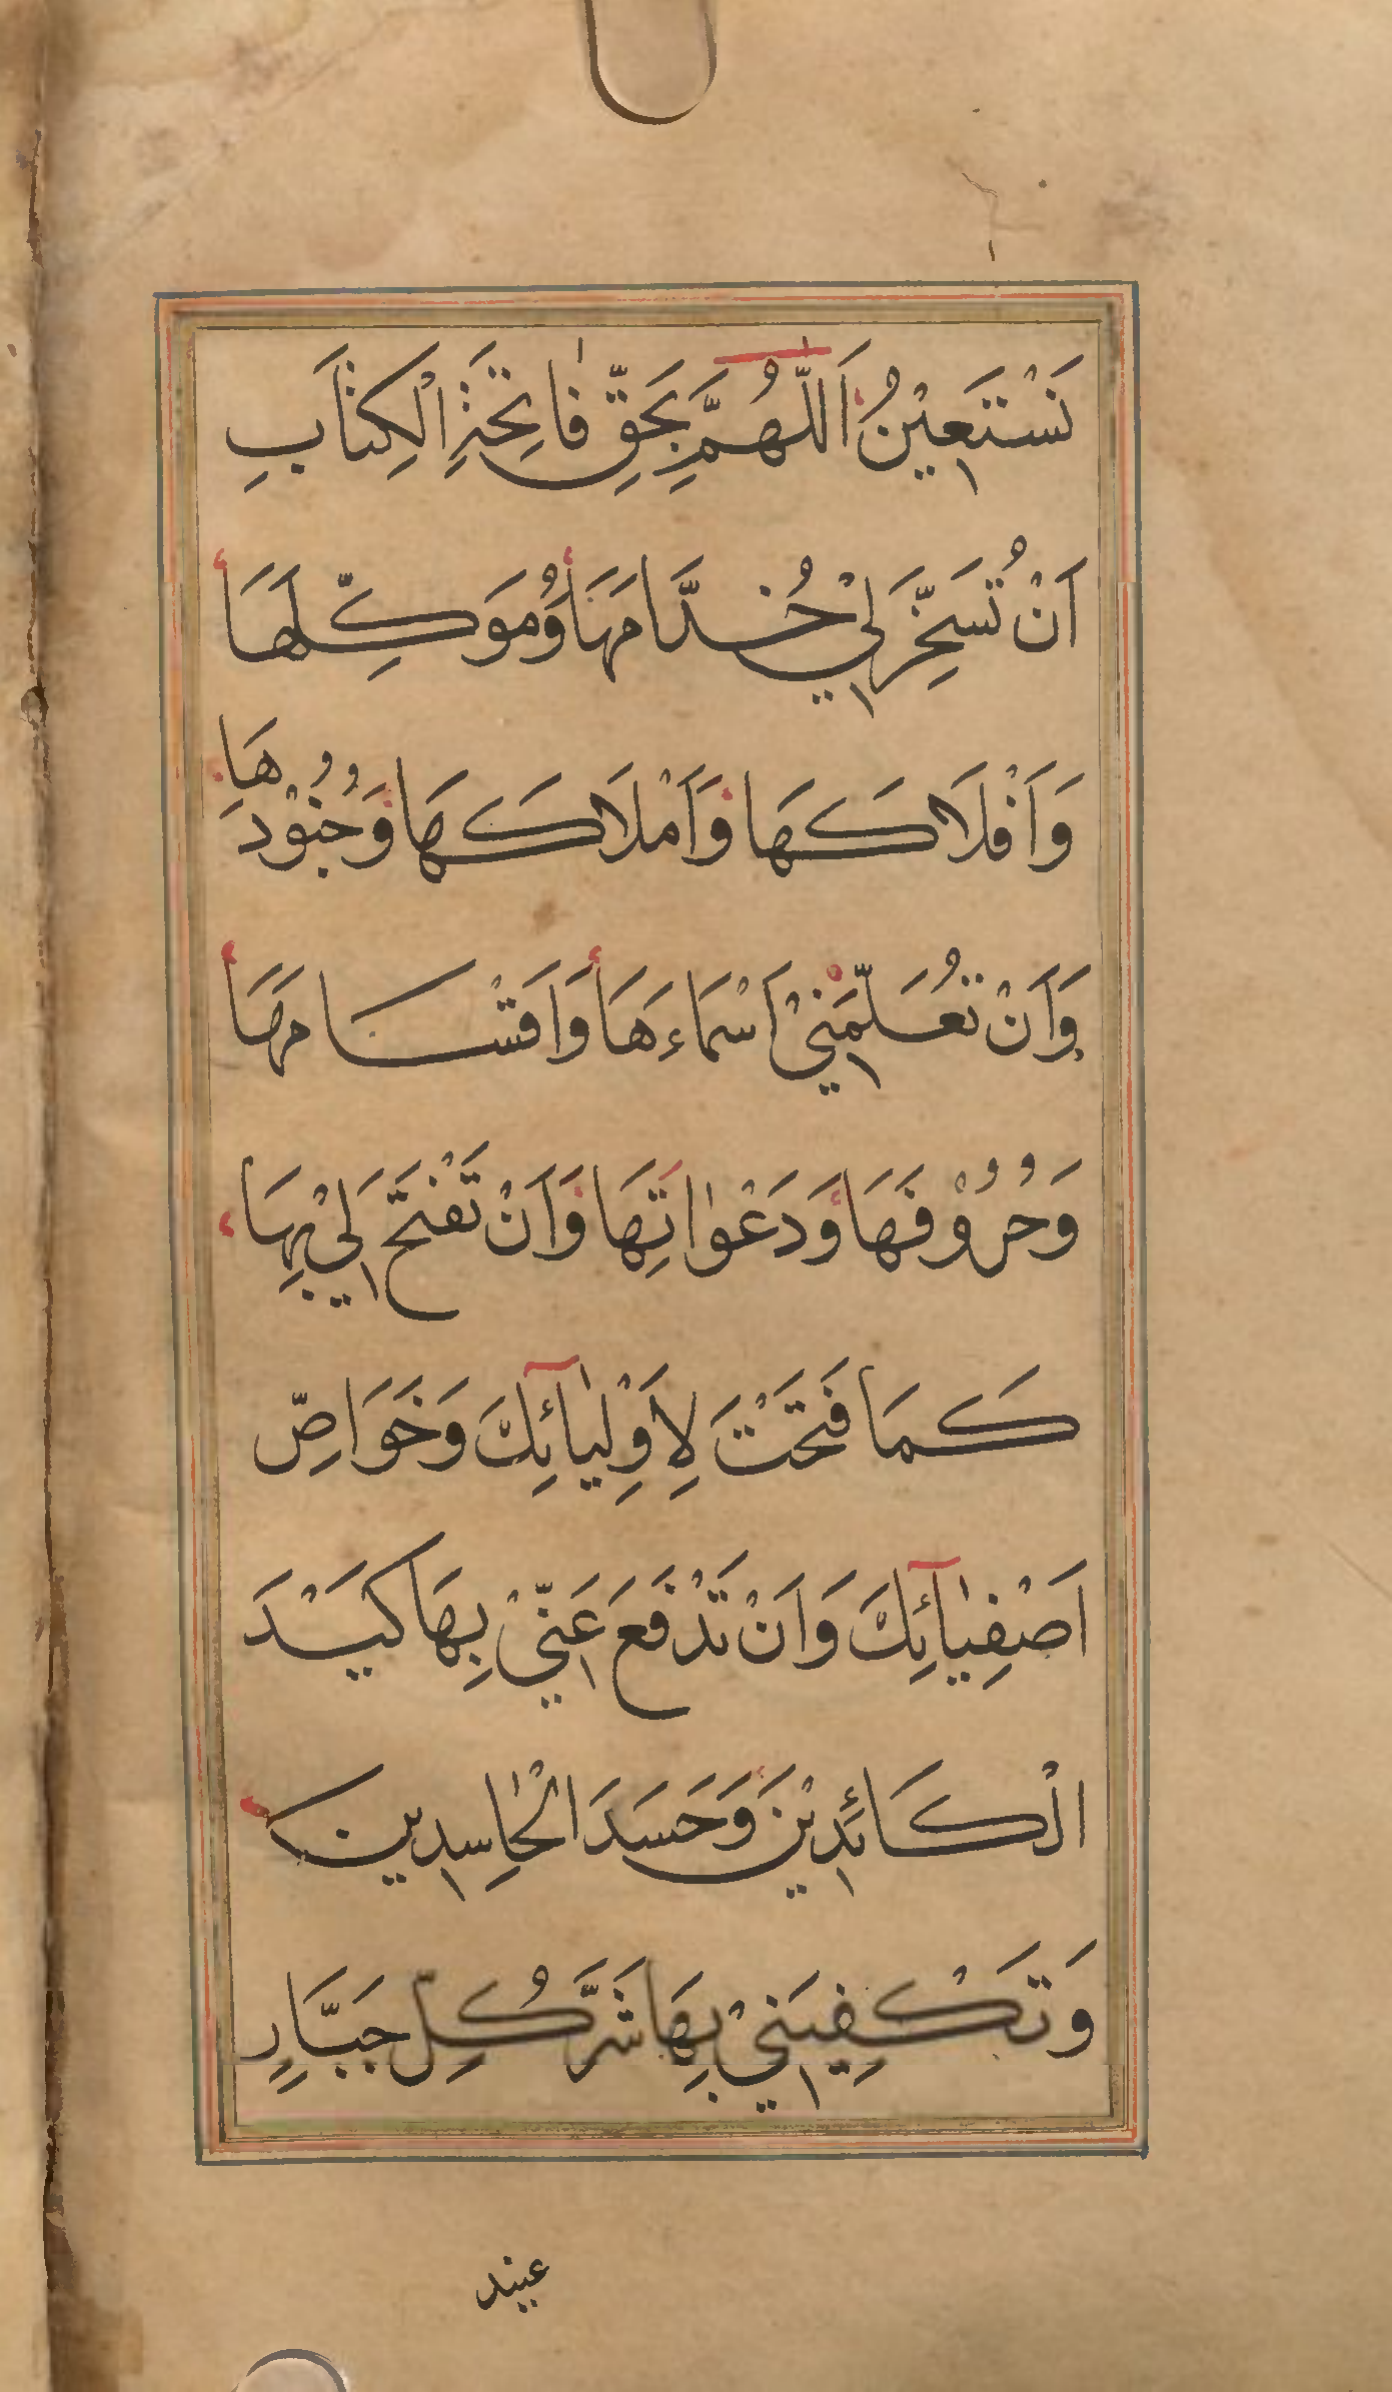 نَسْتَعِيْنُ اَللّٰهُمَّ بِحَقِّ فَاتِحَةِ الْكِتَابِ
اَنْ تُسَخِّرَ لِيْ خُدَّامَهَا وَمُوَكِّلَهَا
وَاَفْلَاكَهَا وَاَمْلَاكَهَا وَجُنُوْدَهَا
وَاَنْ تُعَلِّمَنِيْ اَسْمَاءَهَا وَاَقْسَامَهَا
وَحُرُوْفَهَا وَدَعْوَاتِهَا وَاَنْ تَفْتَحَ لِيْ بِهَا
كَمَا فَتَحْتَ لِاَوْلِيَآئِكَ وَخَوَاصِّ
اَصْفِيَآئِكَ وَاَنْ تَدْفَعَ عَنِّيْ بِهَا كَيْدَ
الْكَائِدِيْنَ وَحَسَدَ الْحَاسِدِيْنَ
وَتَكْفِيَنِيْ بِهَا شَرَّ كُلِّ جَبَّارٍ
عنيد